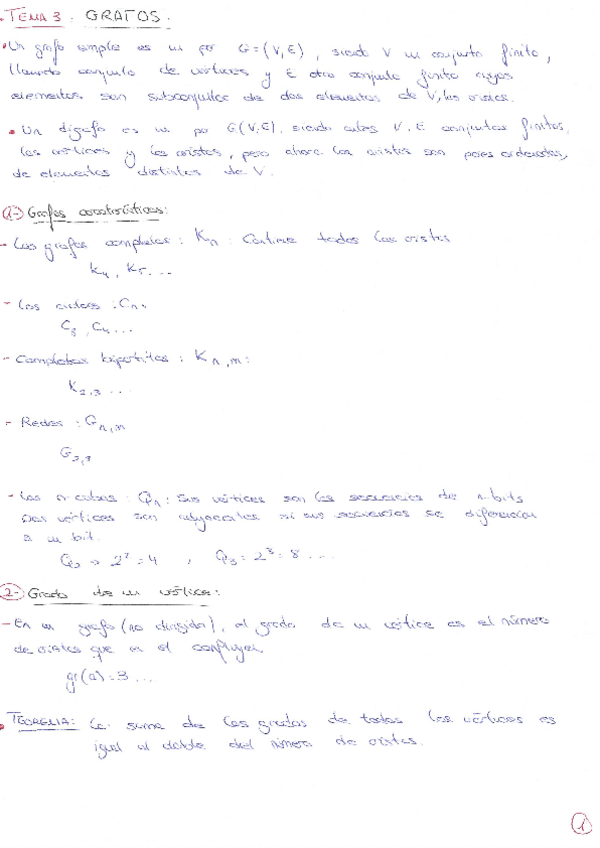 TEMA 3. GRAFOS.
• Un grafo simple es un par G=(V,E), siendo V un conjunto finito,
llamado conjunto de vértices y E otro conjunto finito cuyos
elementos son subconjuntos de dos elementos de V, las aristas.
• Un digrafo es un par G(V,E), siendo V, E conjuntos finitos,
los vértices y las aristas, pero ahora las aristas son pares ordenados,
de elementos distintos de V.
1- Grafos característicos:
- Los grafos completos: Kn: Contiene todas las aristas
K4, K5...
- Los ciclos: Cn.
C3, C4...
- Completos bipartitos: Kn,m:
K2,3...
- Redes: Gn,m
G
- Los n-cubos: Qn: Sus vértices son las secuencias de n-bits
Dos vértices son adyacentes si sus secuencias se diferencian
a un bit.
Q2 → 2²=4, Q3=2³=8...
2- Grado de un vértice:
- En un grafo (no dirigido), el grado de un vértice es el número
de aristas que en él confluyen.
gr(a)=3...
• TEOREMA: La suma de los grados de todos los vértices es
igual al doble del número de aristas.
1